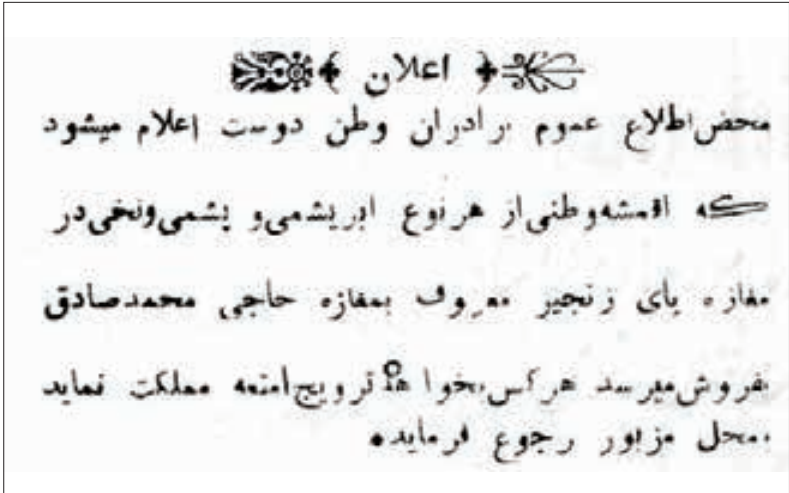 اعلان
محض اطلاع عموم برادران وطن دوست اعلام میشود
که اقمشه وطنی از هر نوع ابریشمی و پشمی و نخی در
مغازه پای زنجیر معروف بمغازه حاجی محمدصادق
بفروش میرسد هر کس بخواهد ترویج امتعه مملکت نماید
بمحل مزبور رجوع فرماید.